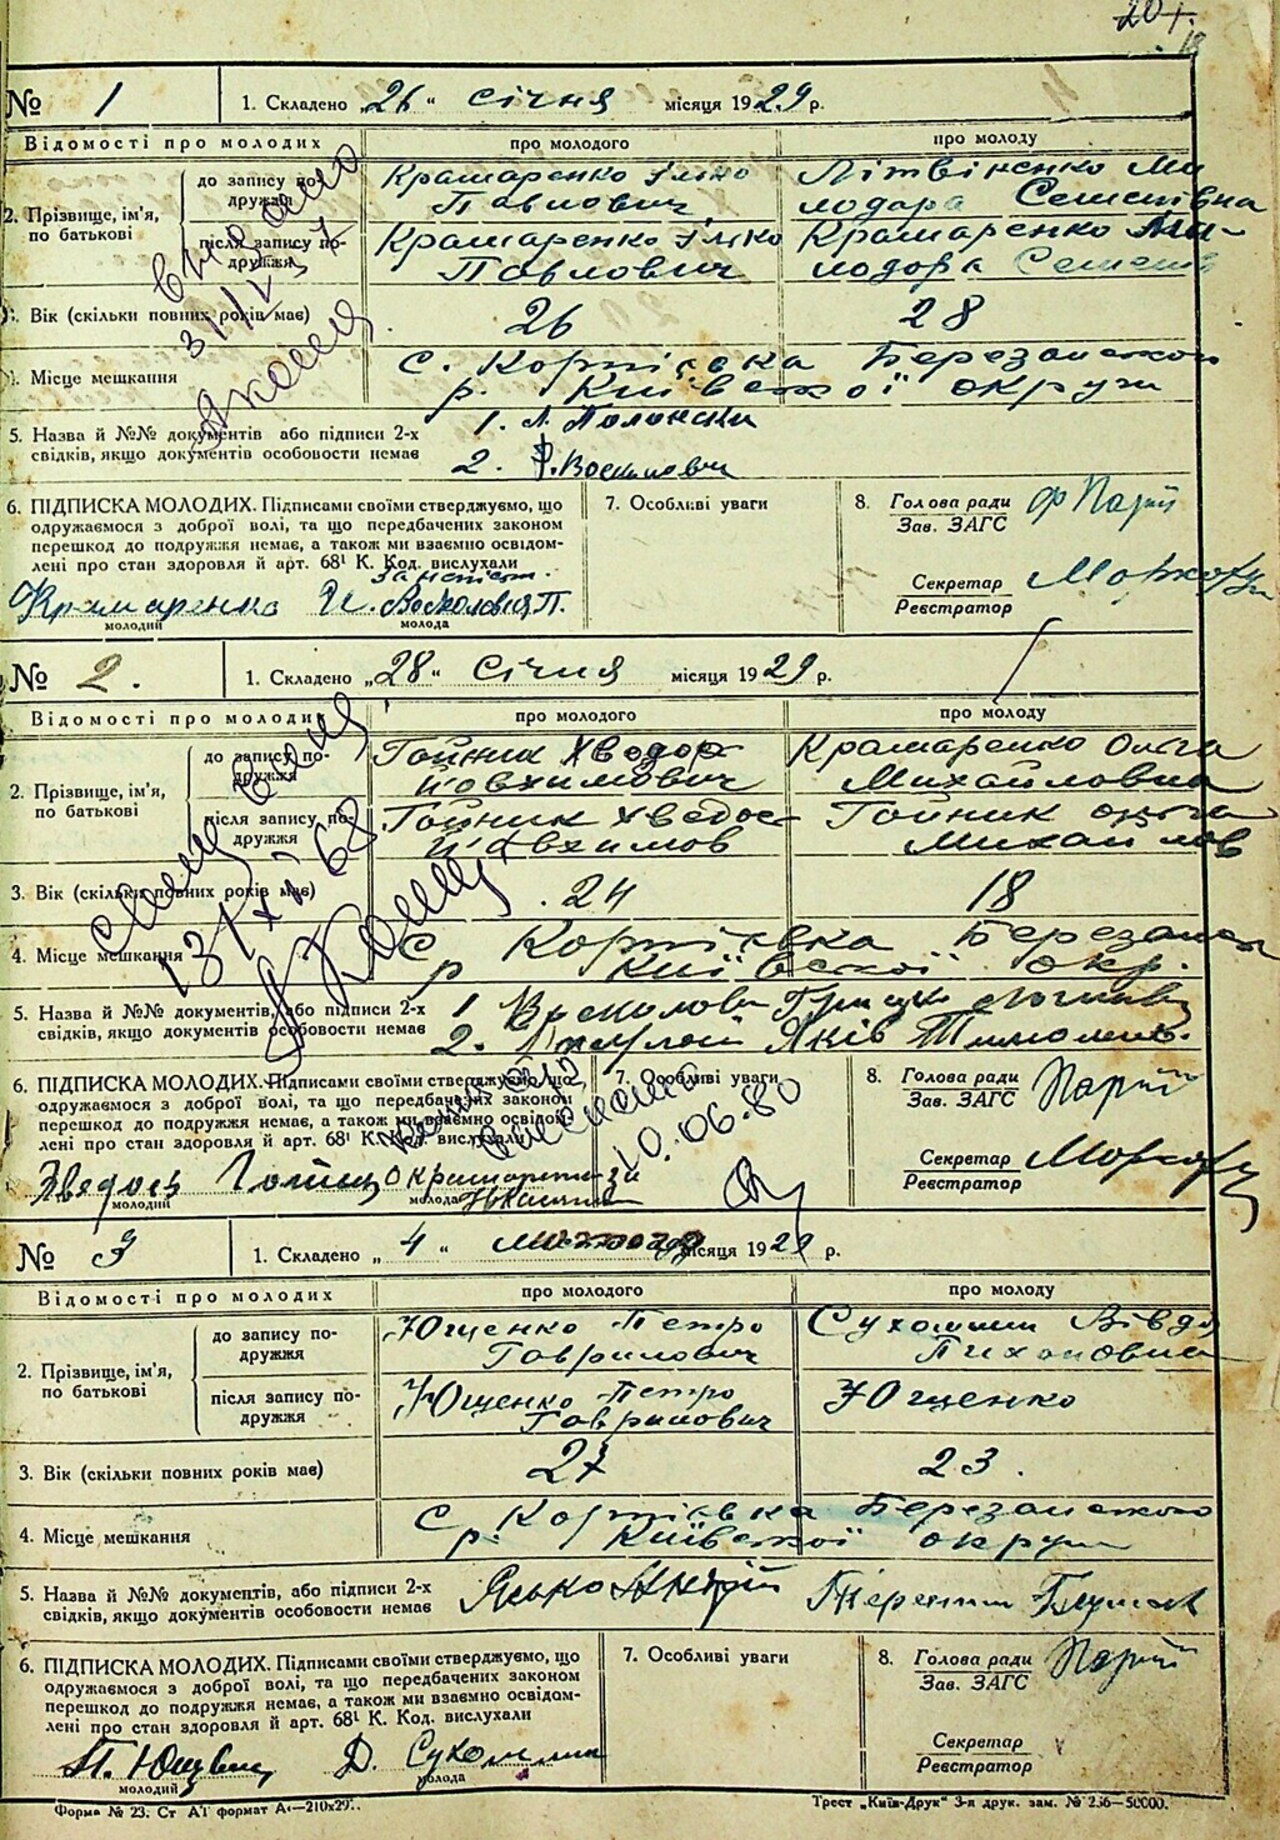 20
№ 1 1. Складено „26“ Січня місяця 1929 р.
Відомості про молодих про молодого про молоду
2. Прізвище, ім'я, по батькові
до запису по-
дружжя
Крамаренко Ілько
Павлович
Літвіненко Ми
лодора Семенівна
після запису по-
дружжя
Крамаренко Ілько
Павлович
Крамаренко Ми-
лодора Семенів
3. Вік (скільки повних років має) 26 28
4. Місце мешкання
с. Корніївка Березанського
р. Київської округи
5. Назва й №№ документів або підписи 2-х
свідків, якщо документів особовости немає
1.
2.
видано
31/V 37
6. ПІДПИСКА МОЛОДИХ. Підписами своїми стверджуємо, що
одружаємося з доброї волі, та що передбачених законом
перешкод до подружжя немає, а також ми взаємно освідом-
лені про стан здоровля й арт. 68¹ К. Код. вислухали
Крамаренко И.
молодий молода
7. Особливі уваги
8. Голова ради
Зав. ЗАГС
Парій
Секретар
Реєстратор
№ 2. 1. Складено „28“ Січня місяця 1929 р.
Відомості про молодих про молодого про молоду
2. Прізвище, ім'я,
по батькові
до запису по-
дружжя
Гойник Хведор
Йовхимович
Крамаренко Ольга
Михайловна
після запису по-
дружжя
Гойник Хведос
Йовхимов
Гойник Ольга
Михайлов
3. Вік (скільки повних років має) 24 18
4. Місце мешкання
С Корніївка Березанськ
р Київської окр.
5. Назва й №№ документів, або підписи 2-х
свідків, якщо документів особовости немає
1
2. Яків
6. ПІДПИСКА МОЛОДИХ. Підписами своїми стверджуємо, що
одружаємося з доброї волі, та що передбачених законом
перешкод до подружжя немає, а також ми взаємно освідом-
лені про стан здоровля й арт. 68¹ К. Код. вислухали
молодий молода
7. Особливі уваги
10.06.80
8. Голова ради
Зав. ЗАГС
Парій
Секретар
Реєстратор
№ 3 1. Складено „4“ лютого місяця 1929 р.
Відомості про молодих про молодого про молоду
2. Прізвище, ім'я,
по батькові
до запису по-
дружжя
Ющенко Петро
Гаврилович
Сухомлин Вівдя
Тихоновна
після запису по-
дружжя
Ющенко Петро
Гаврилович
Ющенко
3. Вік (скільки повних років має) 27 23.
4. Місце мешкання
С Корніївка Березанського
р. Київської округи
5. Назва й №№ документів, або підписи 2-х
свідків, якщо документів особовости немає
6. ПІДПИСКА МОЛОДИХ. Підписами своїми стверджуємо, що
одружаємося з доброї волі, та що передбачених законом
перешкод до подружжя немає, а також ми взаємно освідом-
лені про стан здоровля й арт. 68¹ К. Код. вислухали
Д. Сухомлин
молодий молода
7. Особливі уваги
8. Голова ради
Зав. ЗАГС
Парій
Секретар
Реєстратор
Форма № 23. Ст АТ формат А₄—210х297. Трест „Київ-Друк“ 3-я друк. зам. № 236—50000.